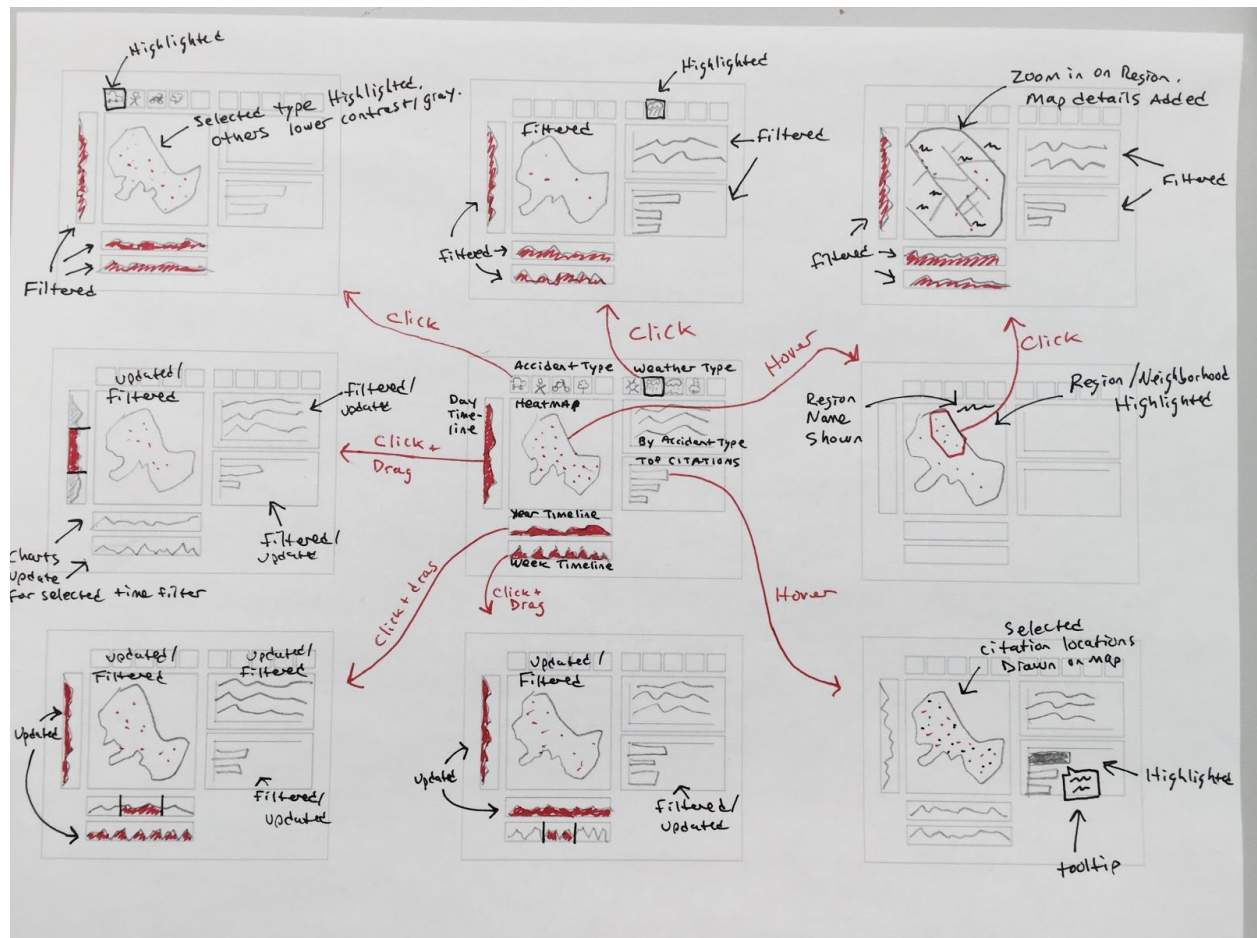 Highlighted
Selected type Highlighted,
others lower contrast/gray.
Filtered
Highlighted
Filtered
Filtered
Filtered
Zoom in on Region.
Map details Added
Filtered
Filtered
Click
Click
Hover
Click
Updated/
Filtered
Filtered/
update
Filtered/
update
Charts
update
for selected time filter
Click +
Drag
Accident Type
Weather Type
Day
Time-
line
HEATMAP
By Accident Type
TOP CITATIONS
Year Timeline
Week Timeline
Region
Name
Shown
Region/Neighborhood
Highlighted
Click + drag
Click +
Drag
Hover
updated/
Filtered
updated/
Filtered
updated
Filtered/
updated
updated /
Filtered
updated
Filtered/
updated
Selected
citation locations
Drawn on map
Highlighted
tooltip